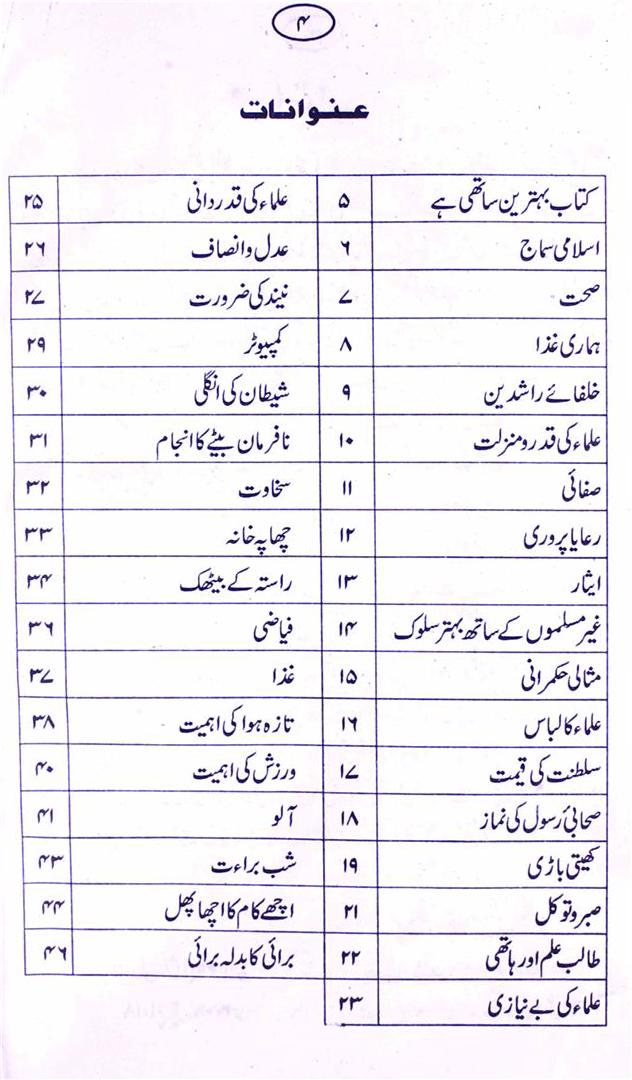 ۴
عنوانات
کتاب بہترین ساتھی ہے ۵ علماء کی قدردانی ۲۵
اسلامی سماج ۶ عدل وانصاف ۲۶
صحت ۷ نیند کی ضرورت ۲۷
ہماری غذا ۸ کمپیوٹر ۲۹
خلفائے راشدین ۹ شیطان کی انگلی ۳۰
علماء کی قدرومنزلت ۱۰ نافرمان بیٹے کا انجام ۳۱
صفائی ۱۱ سخاوت ۳۲
رعایا پروری ۱۲ چھاپہ خانہ ۳۳
ایثار ۱۳ راستہ کے بیٹھک ۳۴
غیر مسلموں کے ساتھ بہتر سلوک ۱۴ فیاضی ۳۶
مثالی حکمرانی ۱۵ غذا ۳۷
علماء کا لباس ۱۶ تازہ ہوا کی اہمیت ۳۸
سلطنت کی قیمت ۱۷ ورزش کی اہمیت ۴۰
صحابیٔ رسول کی نماز ۱۸ آلو ۴۱
کھیتی باڑی ۱۹ شب براءت ۴۳
صبر وتوکل ۲۱ اچھے کام کا اچھا پھل ۴۴
طالب علم اور ہاتھی ۲۲ برائی کا بدلہ برائی ۴۶
علماء کی بے نیازی ۲۳